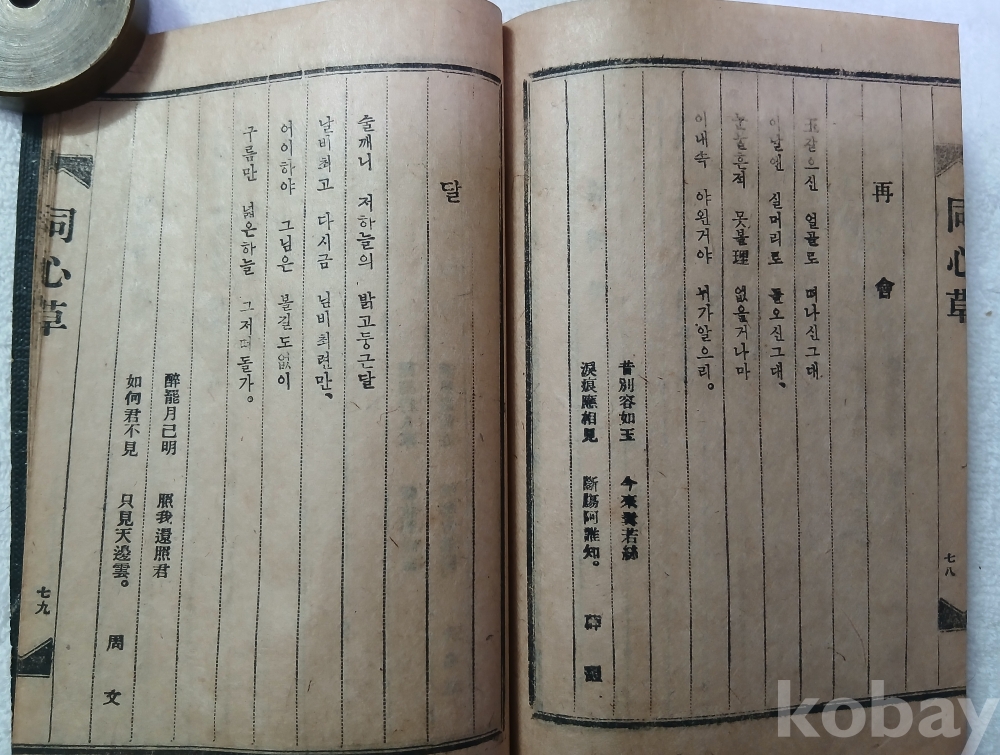 同心草
七八
再會
玉갈으신 얼골로 떠나신그대
이날엔 실머리로 돌오신그대、
눈물흔적 못볼理 없을거나마
이내속 야윈거야 뉘가알으리。
昔別容如玉 今來鬢若絲
淚痕應相見 斷膓阿誰知。
薛
달
술깨니 저하늘의 밝고둥근달
날비최고 다시금 님비최련만、
어이하야 그님은 볼길도없이
구름만 넓은하늘 그저떠돌가。
醉罷月已明 照我還照君
如何君不見 只見天邊雲。
周文
同心草
七九
kobay